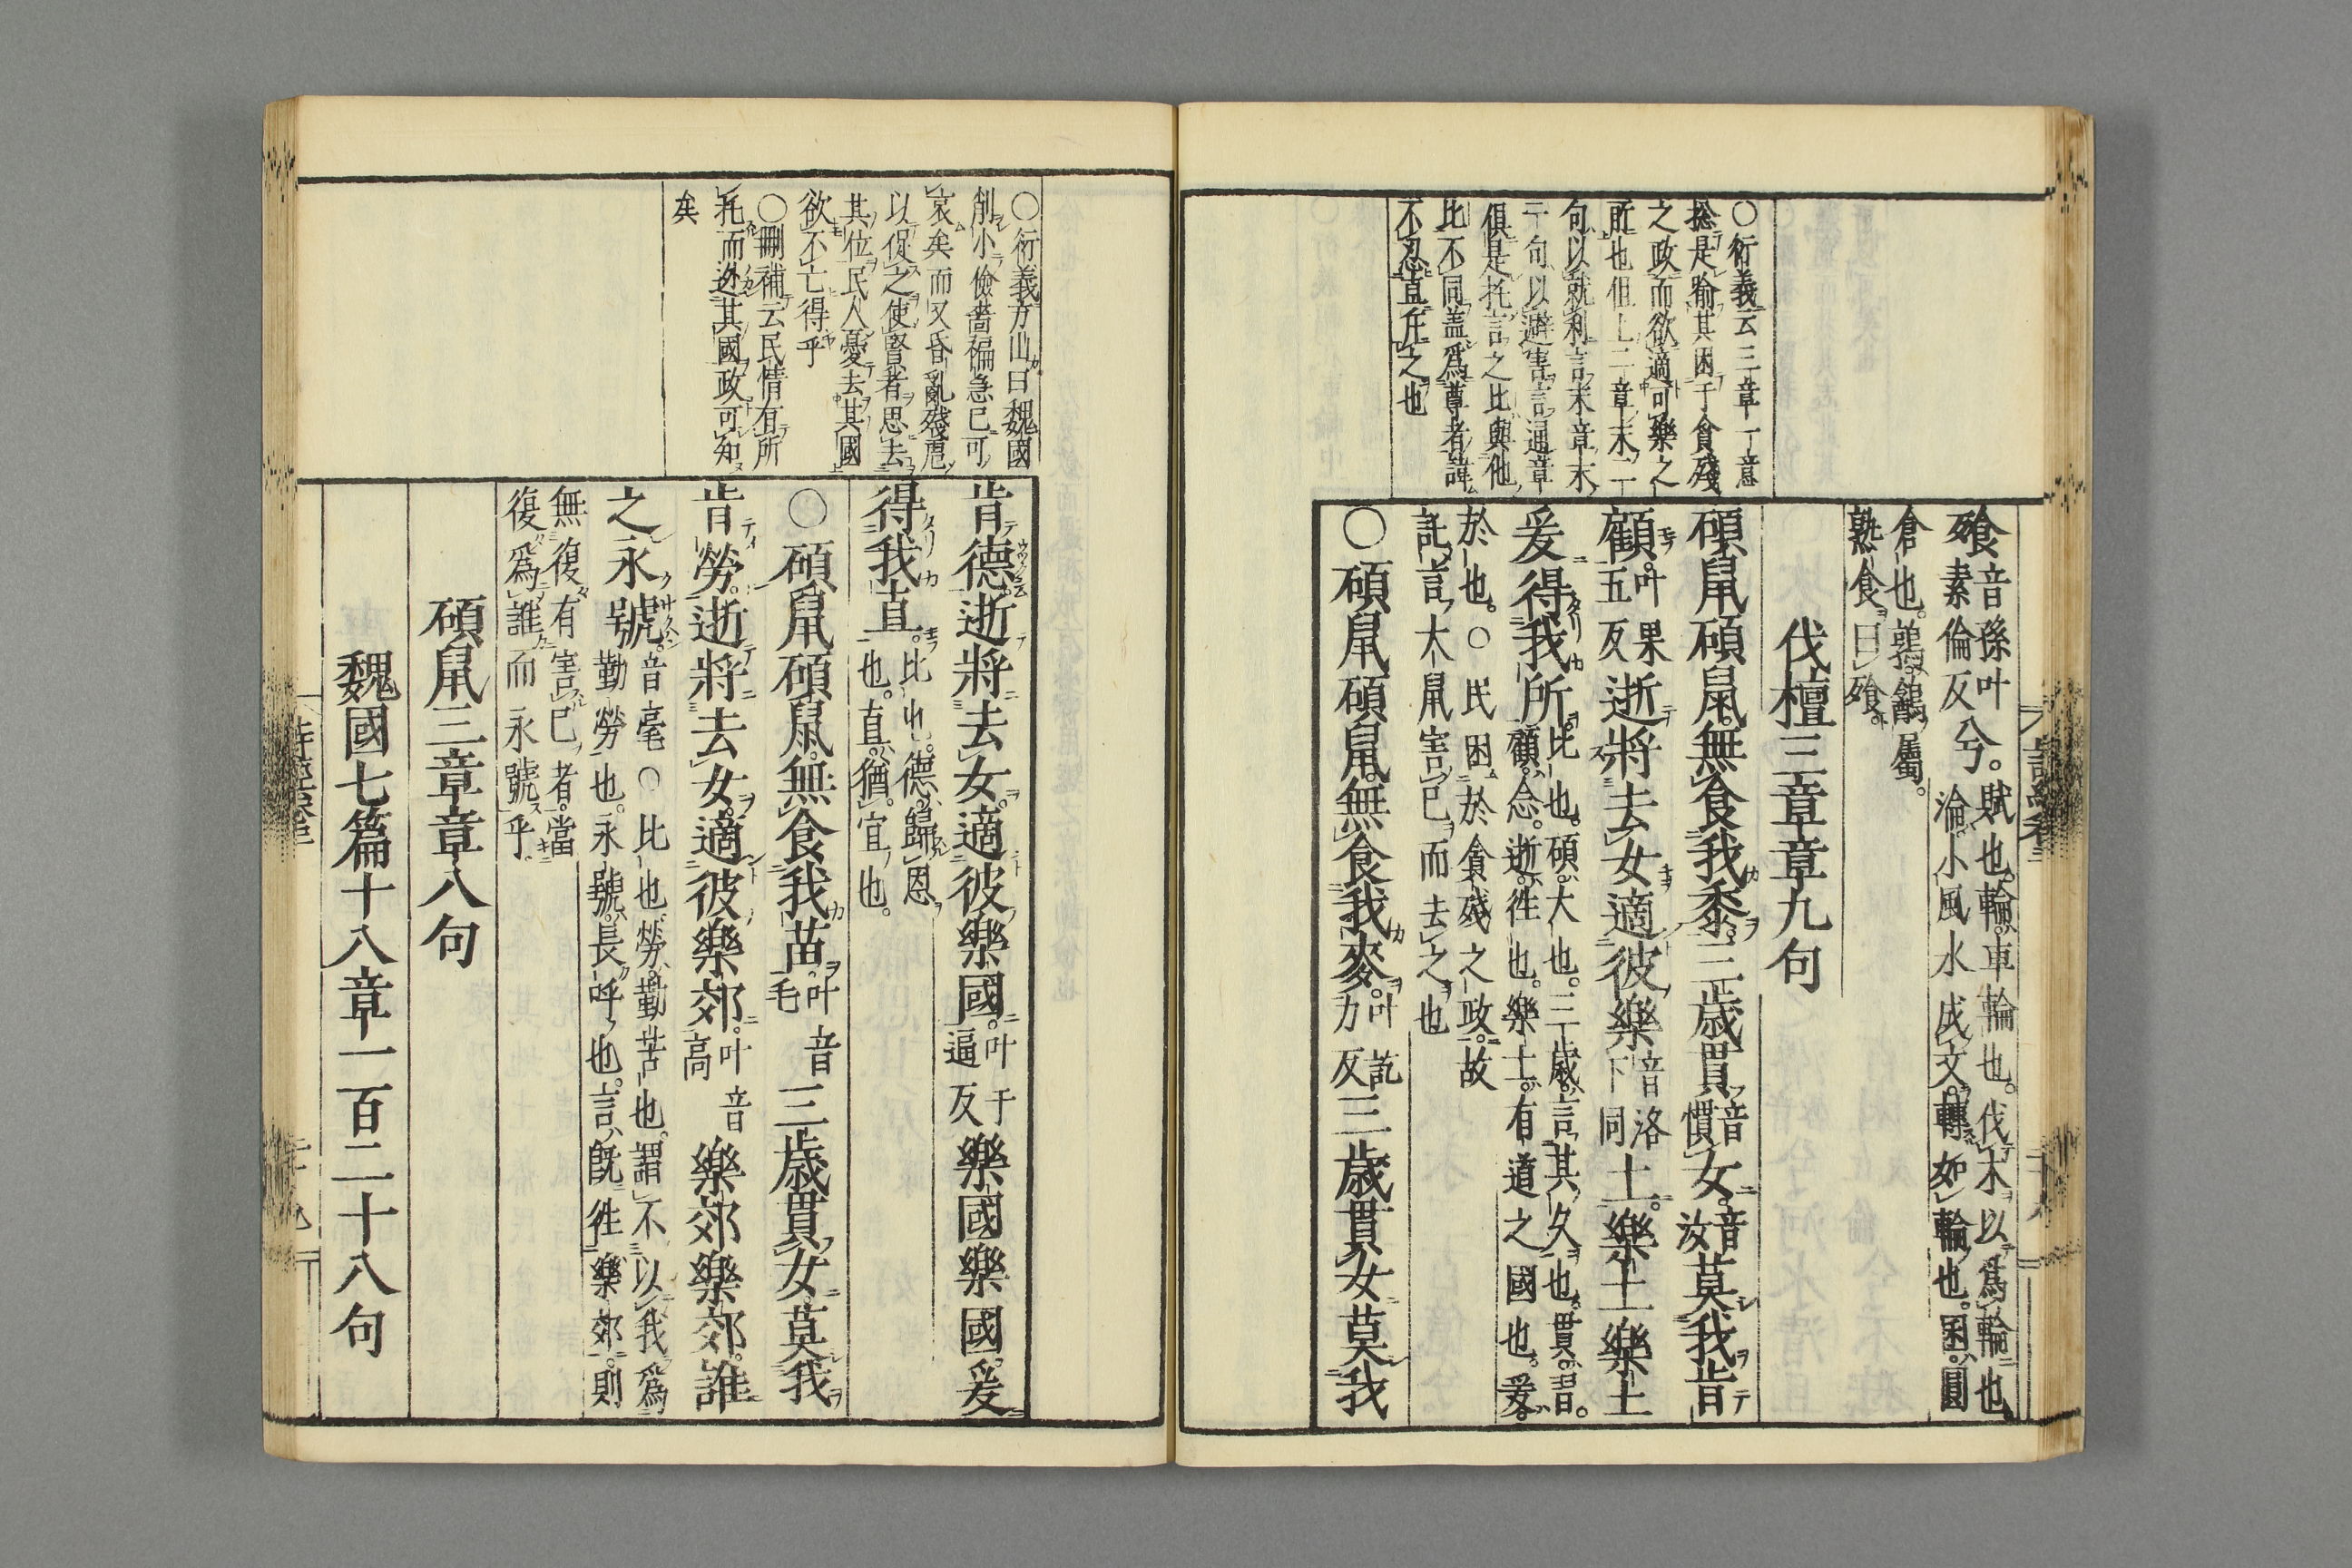 ○衍義云三章一意
捴是喻其困于貪殘
之政而欲適可樂之
所也但上二章末二
句以就利言末章末
二句以避害言通章
俱是托言之比與他
比不同盖爲尊者諱
不忍直斥之也
飧音孫叶素倫反兮。賦也。輪。車輪也。伐木以爲輪也
淪。小風水成文。轉如輪也。囷。圓
倉也。鶉。鷂屬。
熟食曰飧。
伐檀三章章九句
碩鼠碩鼠。無食我黍。三歲貫音慣女。音汝莫我肯
顧。叶果五反逝將去女適彼樂音洛下同土。樂土樂土
爰得我所。比也。碩。大也。三歲。言其久也。貫。習。
顧。念。逝。徃也。樂土。有道之國也。爰。
於也。○民困於貪殘之政。故
託言大鼠害己而去之也
○碩鼠碩鼠。無食我麥。叶訖力反三歲貫女莫我
○衍義方山曰魏國
削小儉嗇褊急已可
哀矣而又昏亂殘虐
以促之使賢者思去
其位民人憂去其國
欲不亡得乎
○刪補云民情有所
托而逃其國政可知
矣
肯德。逝將去女。適彼樂國。叶于逼反樂國樂國。爰
得我直。比也。德。歸恩
也。直。猶宜也。
○碩鼠碩鼠。無食我苗。叶音毛三歲貫女。莫我
肯勞。逝將去女。適彼樂郊。叶音高樂郊樂郊。誰
之永號。音毫○比也。勞。勤苦也。謂不以我爲
勤勞也。永號。長呼也。言旣徃樂郊。則
無復有害己者。當
復爲誰而永號乎。
碩鼠三章章八句
魏國七篇十八章一百二十八句